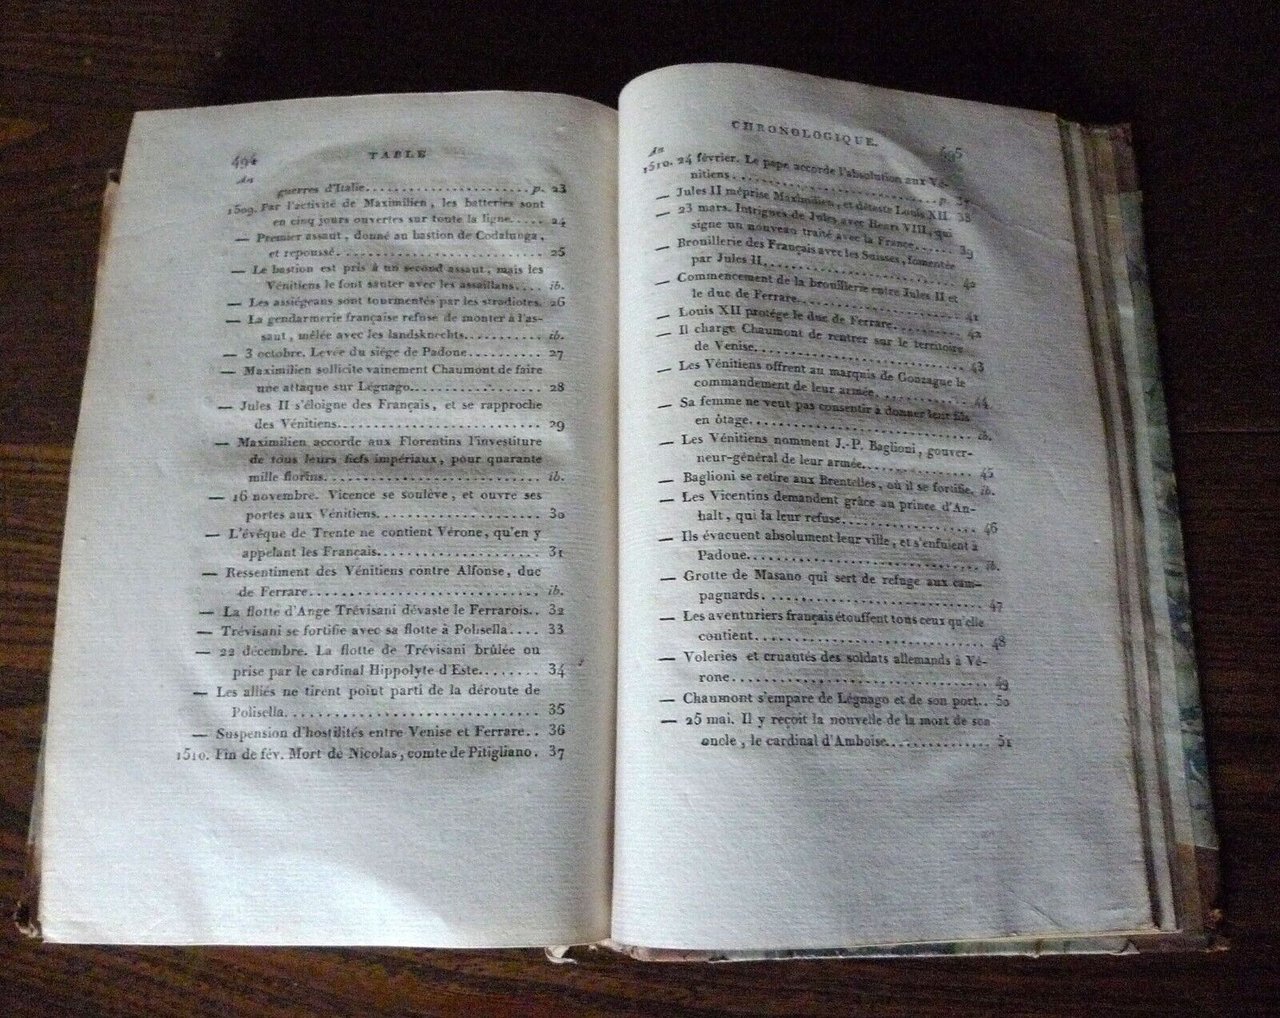 494 TABLE
An
guerres d'Italie....................... p. 23
1509. Par l'activité de Maximilien, les batteries sont
en cinq jours ouvertes sur toute la ligne..... 24
— Premier assaut, donné au bastion de Codalunga,
et repoussé............................ 25
— Le bastion est pris à un second assaut, mais les
Vénitiens le font sauter avec les assaillans.... ib.
— Les assiégeans sont tourmentés par les stradiotes. 26
— La gendarmerie française refuse de monter à l'as-
saut, mêlée avec les landsknechts........... ib.
— 3 octobre. Levée du siége de Padoue.......... 27
— Maximilien sollicite vainement Chaumont de faire
une attaque sur Légnago.................. 28
— Jules II s'éloigne des Français, et se rapproche
des Vénitiens........................... 29
— Maximilien accorde aux Florentins l'investiture
de tous leurs fiefs impériaux, pour quarante
mille florins............................ ib.
— 16 novembre. Vicence se soulève, et ouvre ses
portes aux Vénitiens..................... 30
— L'évêque de Trente ne contient Vérone, qu'en y
appelant les Français..................... 31
— Ressentiment des Vénitiens contre Alfonse, duc
de Ferrare............................. ib.
— La flotte d'Ange Trévisani dévaste le Ferrarois.. 32
— Trévisani se fortifie avec sa flotte à Polisella.... 33
— 22 décembre. La flotte de Trévisani brûlée ou
prise par le cardinal Hippolyte d'Este........ 34
— Les alliés ne tirent point parti de la déroute de
Polisella............................... 35
— Suspension d'hostilités entre Venise et Ferrare.. 36
1510. Fin de fév. Mort de Nicolas, comte de Pitigliano. 37
CHRONOLOGIQUE. 495
An
1510. 24 février. Le pape accorde l'absolution aux Vé-
nitiens............................... p. 37
— Jules II méprise Maximilien, et déteste Louis XII. 38
— 23 mars. Intrigues de Jules avec Henri VIII, qui
signe un nouveau traité avec la France....... 39
— Brouillerie des Français avec les Suisses, fomentée
par Jules II............................ 40
— Commencement de la brouillerie entre Jules II et
le duc de Ferrare........................ 41
— Louis XII protége le duc de Ferrare.......... 42
— Il charge Chaumont de rentrer sur le territoire
de Venise.............................. 43
— Les Vénitiens offrent au marquis de Gonzague le
commandement de leur armée.............. 44
— Sa femme ne veut pas consentir à donner leur fils
en ôtage............................... ib.
— Les Vénitiens nomment J.-P. Baglioni, gouver-
neur-général de leur armée................ 45
— Baglioni se retire aux Brentelles, où il se fortifie. ib.
— Les Vicentins demandent grâce au prince d'An-
halt, qui la leur refuse.................... 46
— Ils évacuent absolument leur ville, et s'enfuient à
Padoue................................ ib.
— Grotte de Masano qui sert de refuge aux cam-
pagnards.............................. 47
— Les aventuriers français étouffent tous ceux qu'elle
contient............................... 48
— Voleries et cruautés des soldats allemands à Vé-
rone.................................. 49
— Chaumont s'empare de Légnago et de son port.. 50
— 25 mai. Il y reçoit la nouvelle de la mort de son
oncle, le cardinal d'Amboise.............. 51